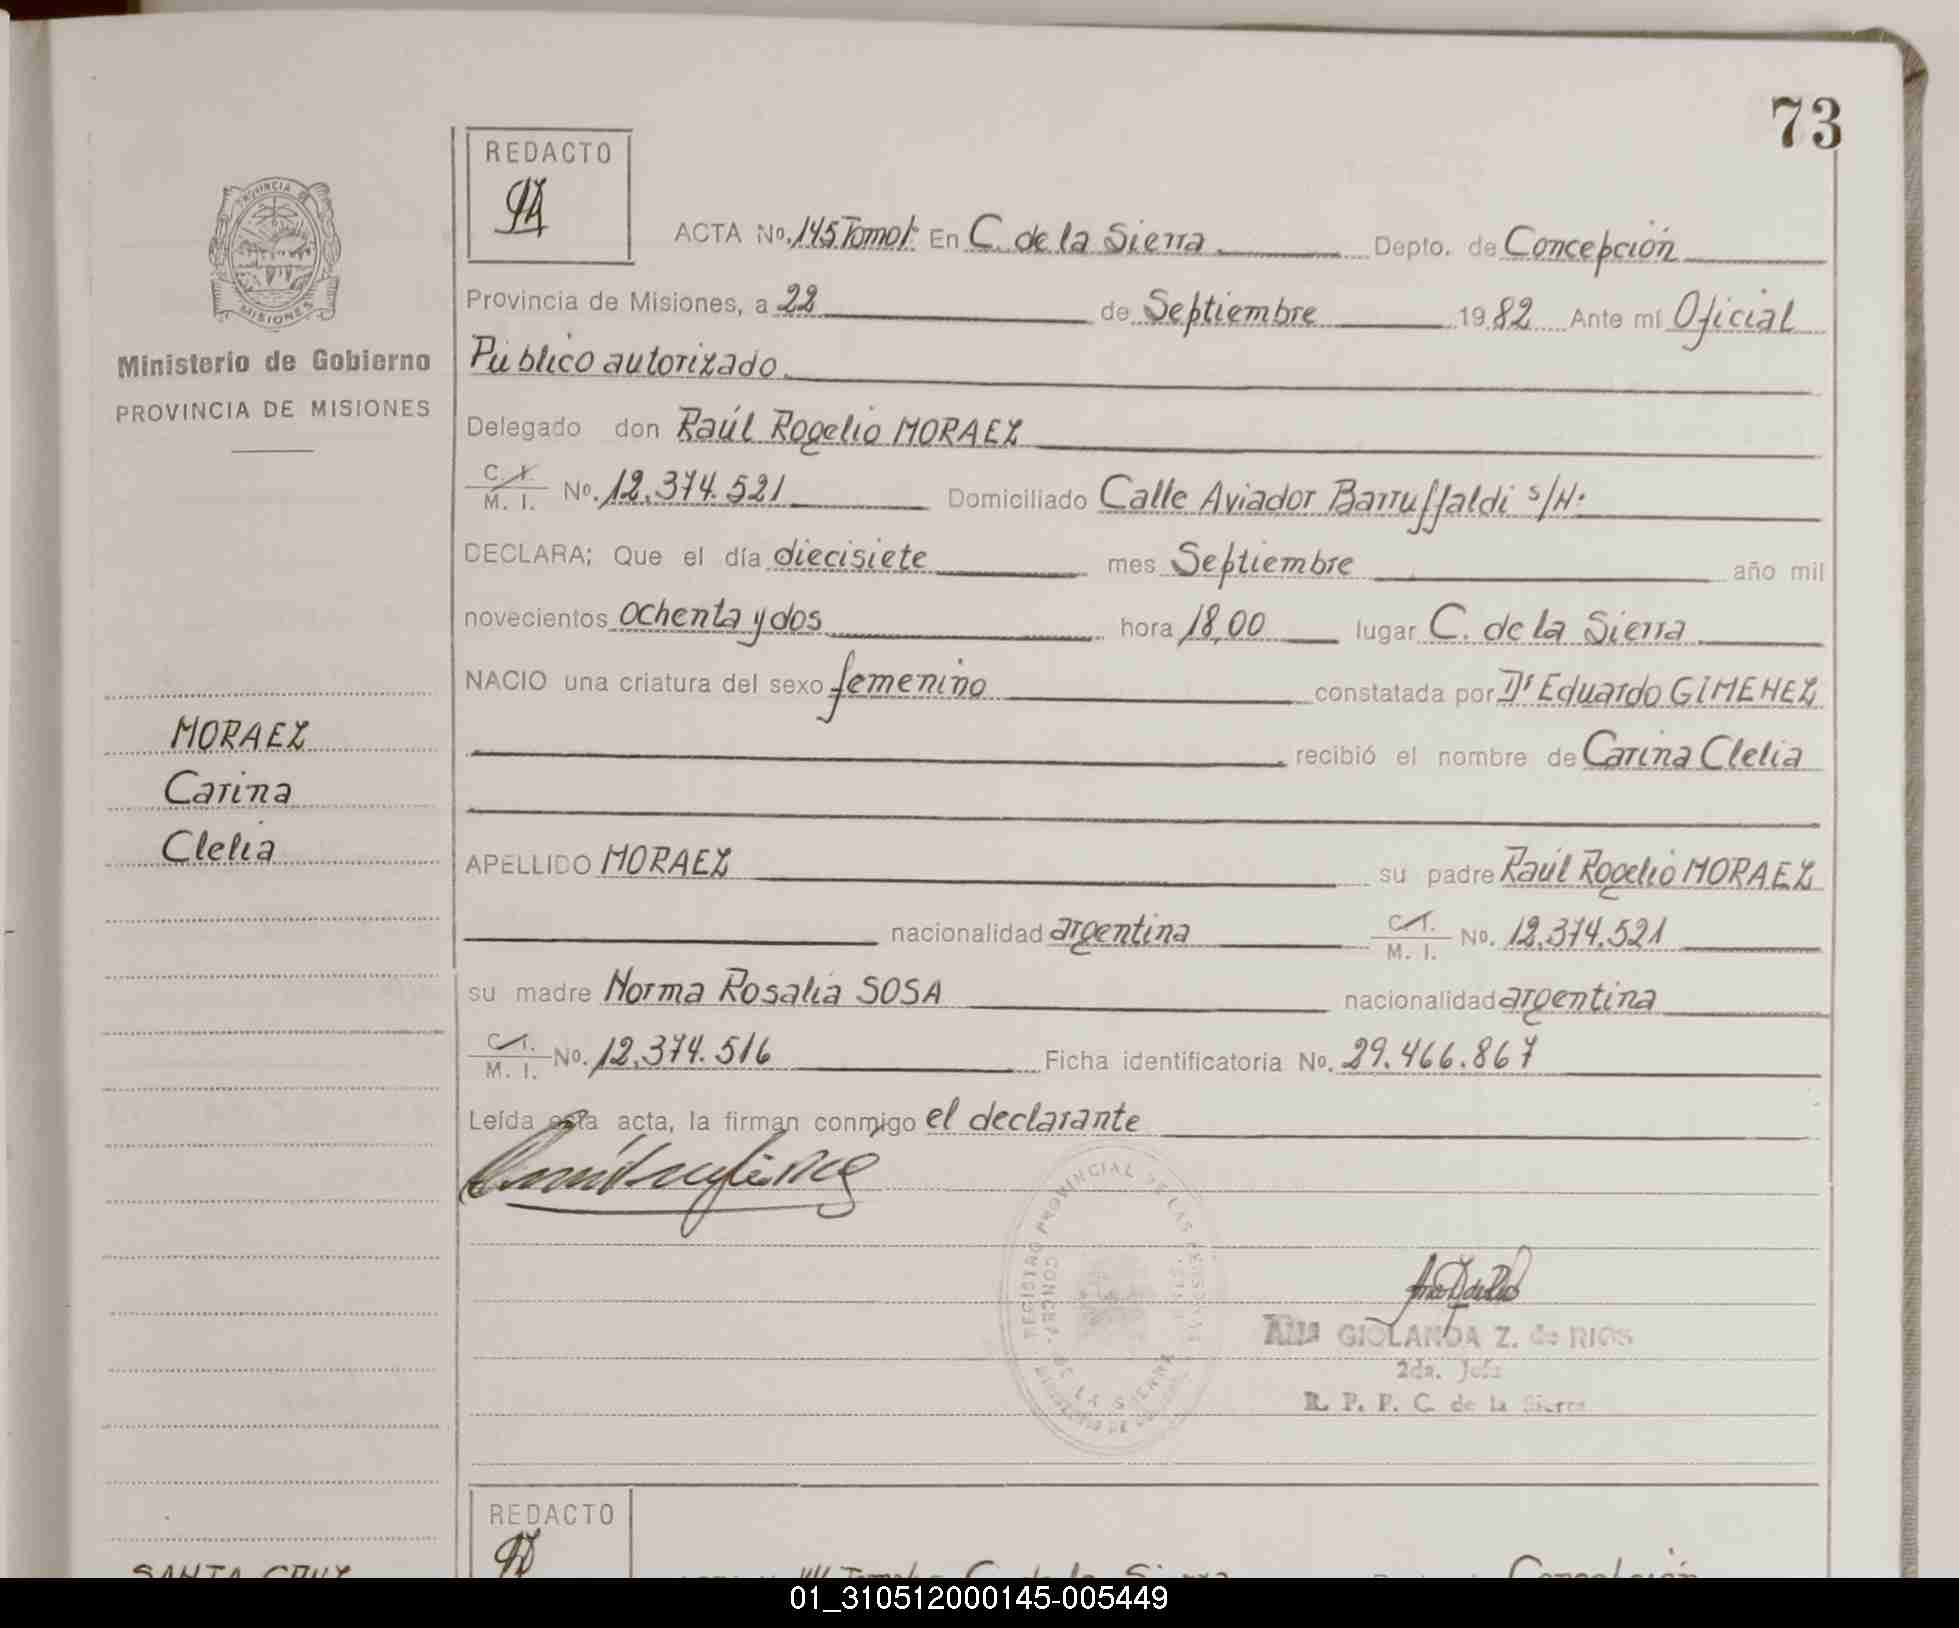 73
REDACTO
ACTA No. 145 Tomo 1º En C. de la Sierra Depto. de Concepción
PROVINCIA DE
MISIONES
Provincia de Misiones, a 22 de Septiembre 1982 Ante mí Oficial
Ministerio de Gobierno
Público autorizado
PROVINCIA DE MISIONES
Delegado don Raúl Rogelio MORAEZ
C. I.
M. I. No. 12.374.521 Domiciliado Calle Aviador Barruffaldi s/Nº
DECLARA; Que el día diecisiete mes Septiembre año mil
novecientos ochenta y dos hora 18,00 lugar C. de la Sierra
NACIO una criatura del sexo femenino constatada por Dr Eduardo GIMENEZ
MORAEZ
recibió el nombre de Carina Clelia
Carina
Clelia
APELLIDO MORAEZ su padre Raúl Rogelio MORAEZ
nacionalidad argentina C. I. M. I. No. 12.374.521
su madre Norma Rosalia SOSA nacionalidad argentina
C. I.
M. I. No. 12.374.516 Ficha identificatoria No. 29.466.867
Leída esta acta, la firman conmigo el declarante
REGISTRO PROVINCIAL DE LAS PERSONAS
CONCEP. DE LA SIERRA
Ana GIOLANDA Z. de RIOS
2da. Jefe
R. P. P. C. de la Sierra
REDACTO
SANTA CRUZ
C. de la Sierra Concepción
01_310512000145-005449